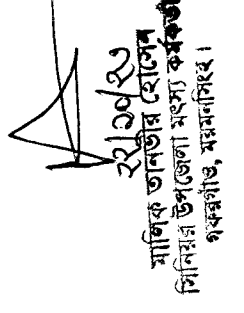 ২২/১০/২০
মালিক তানভীর হোসেন
সিনিয়র উপজেলা মৎস্য কর্মকর্তা
গফরগাঁও, ময়মনসিংহ।